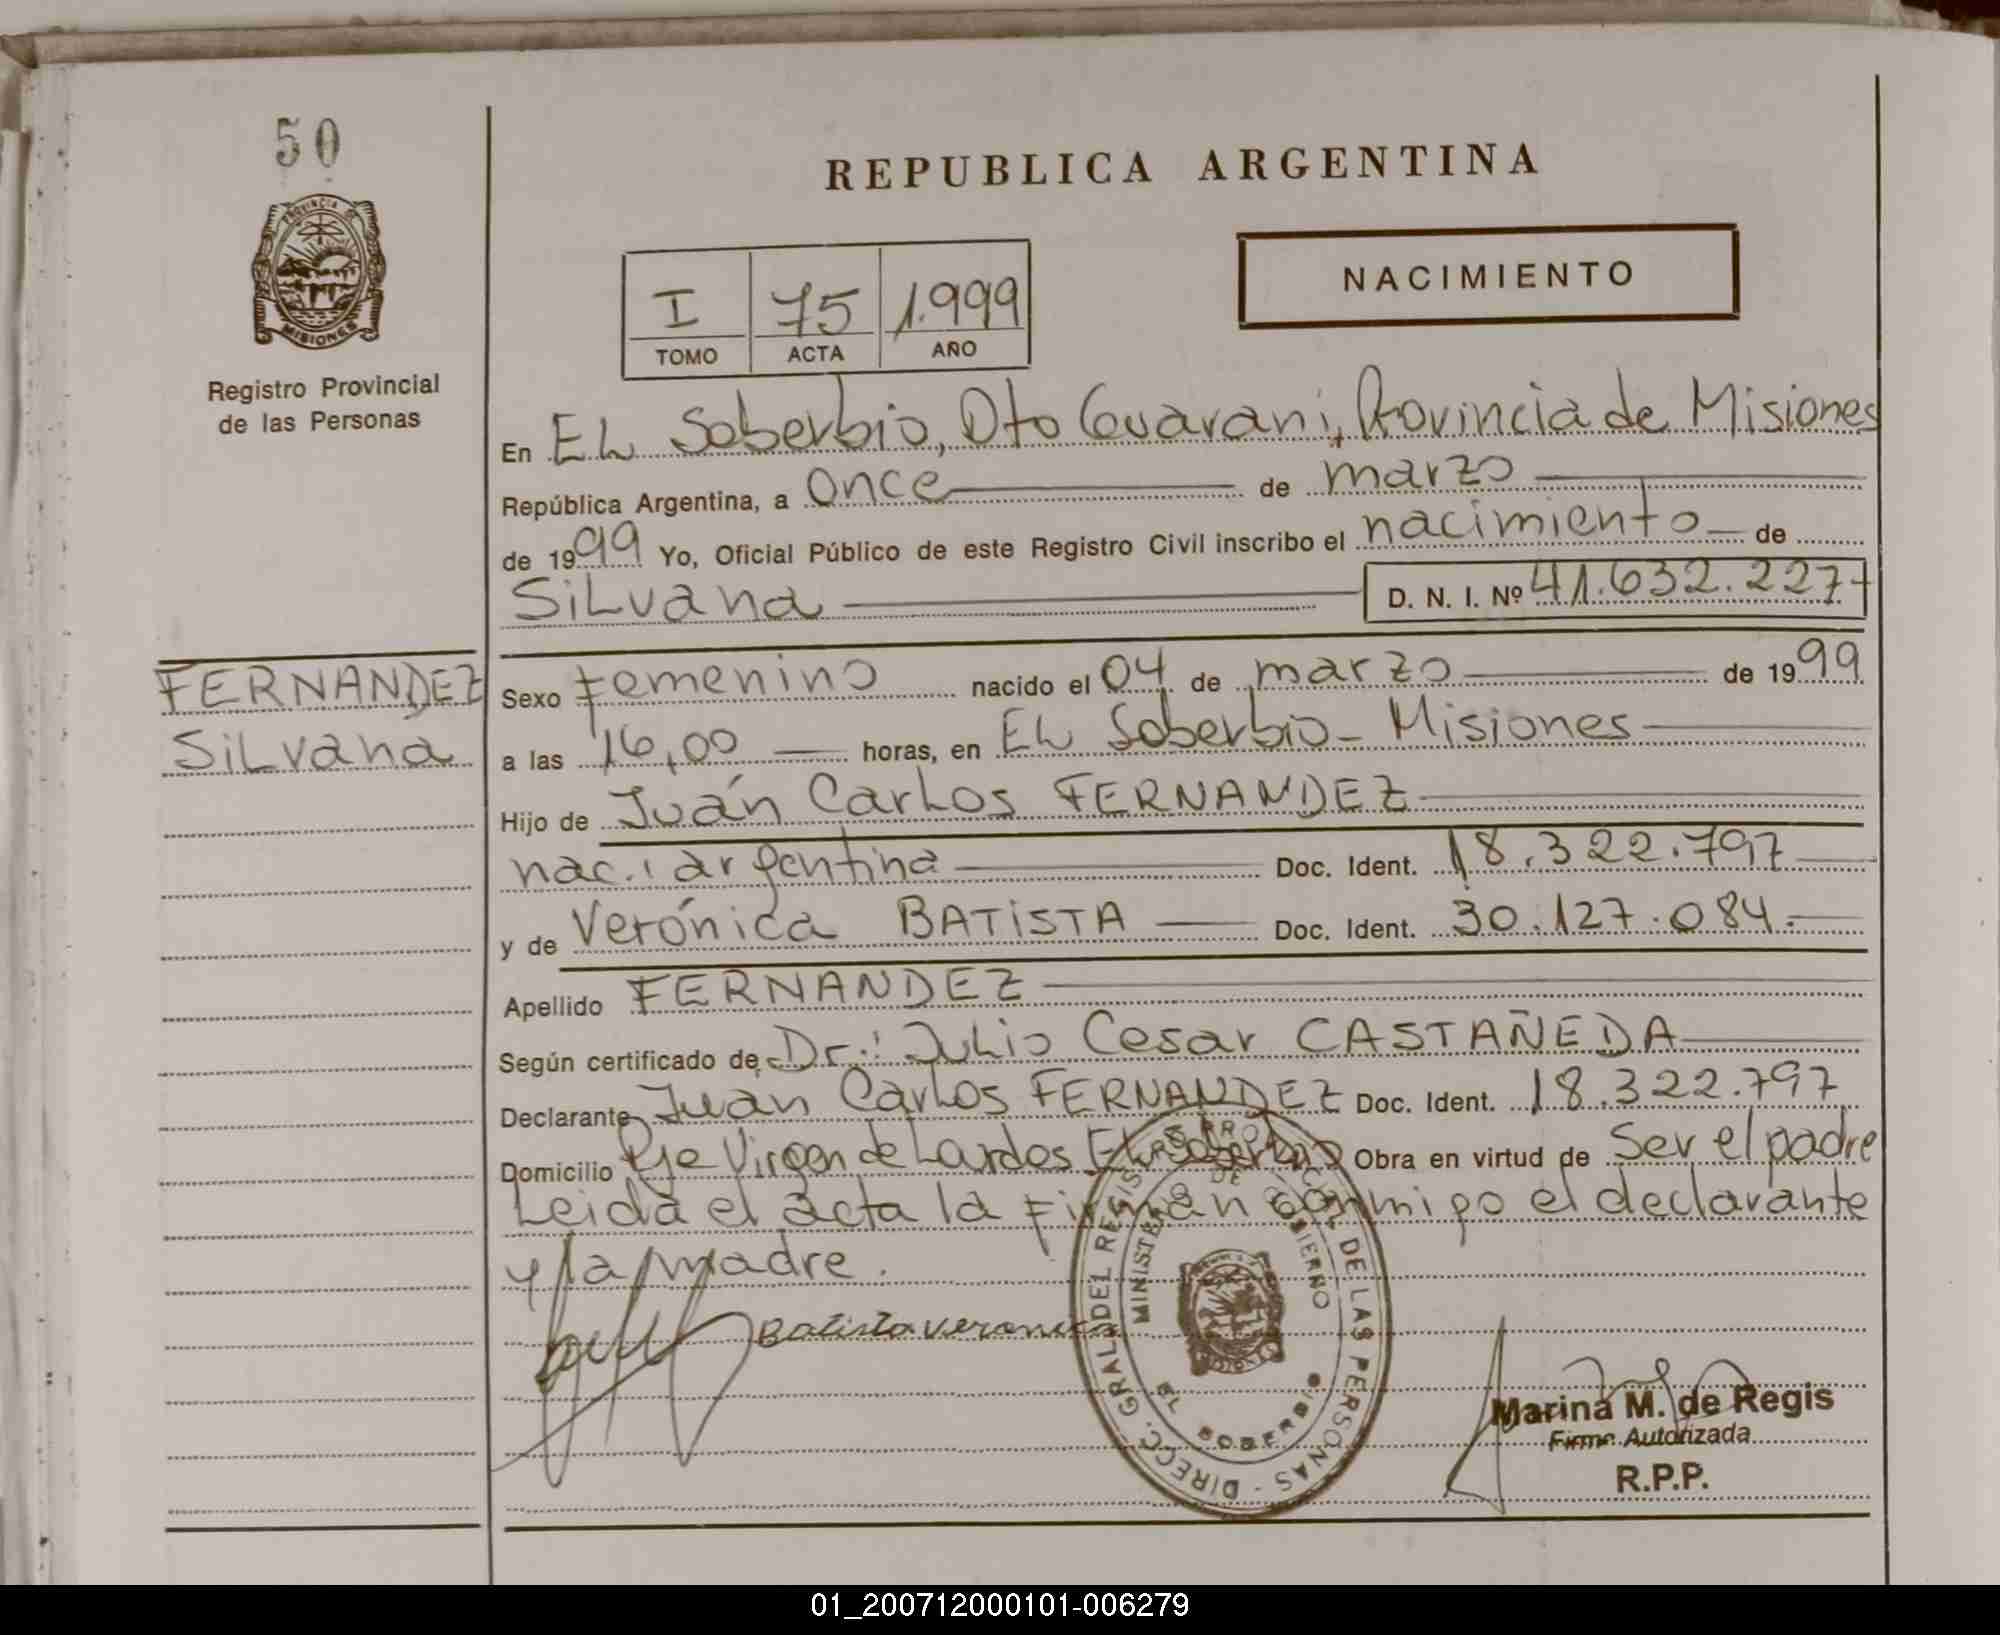 50
REPUBLICA ARGENTINA
PROVINCIA DE
MISIONES
Registro Provincial
de las Personas
NACIMIENTO
I 75 1.999
TOMO ACTA AÑO
En EL Soberbio, Dto Guarani, Provincia de Misiones
República Argentina, a Once de marzo
de 1999 Yo, Oficial Público de este Registro Civil inscribo el nacimiento de
SiLvana D. N. I. Nº 41.632.227
FERNANDEZ
SiLvana
Sexo femenino nacido el 04 de marzo de 1999
a las 16,00 horas, en EL Soberbio - Misiones
Hijo de Juán CarLos FERNANDEZ
nac.: argentina Doc. Ident. 18.322.797
y de Verónica BATiSTA Doc. Ident. 30.127.084.-
Apellido FERNANDEZ
Según certificado de Dr.: JuLio Cesar CASTAÑEDA
Declarante Juan CarLos FERNANDEZ Doc. Ident. 18.322.797
Domicilio Pje Virgen de Lourdes EL Soberbio Obra en virtud de Ser el padre
Leida el acta la firman conmigo el declarante
y la madre.
Batista veronica
DIRECC. GRAL. DEL REGIST. PROVINCIAL DE LAS PERSONAS
MINISTERIO DE GOBIERNO
EL SOBERBIO
Marina M. de Regis
Firma Autorizada
R.P.P.
01_200712000101-006279